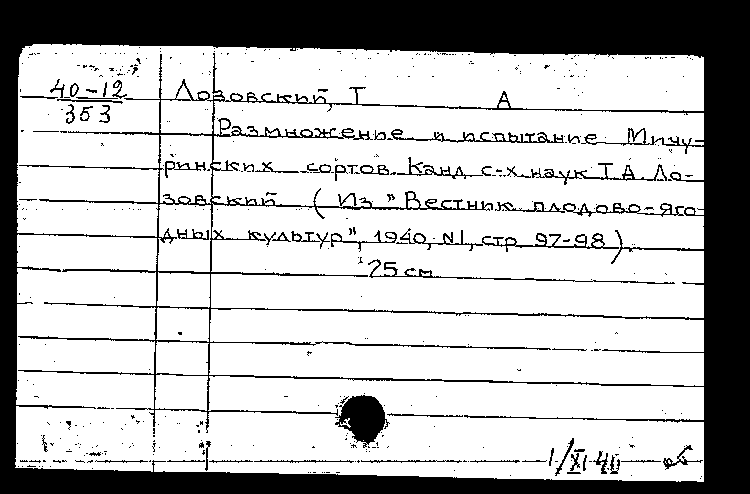 40-12
353
Лозовский, Т А
Размножение и испытание Мичу-
ринских сортов. Канд. с-х. наук Т.А. Ло-
зовский. (Из "Вестник плодово-яго-
дных культур", 1940, N1, стр. 97-98).
25 см.
1/XI 40